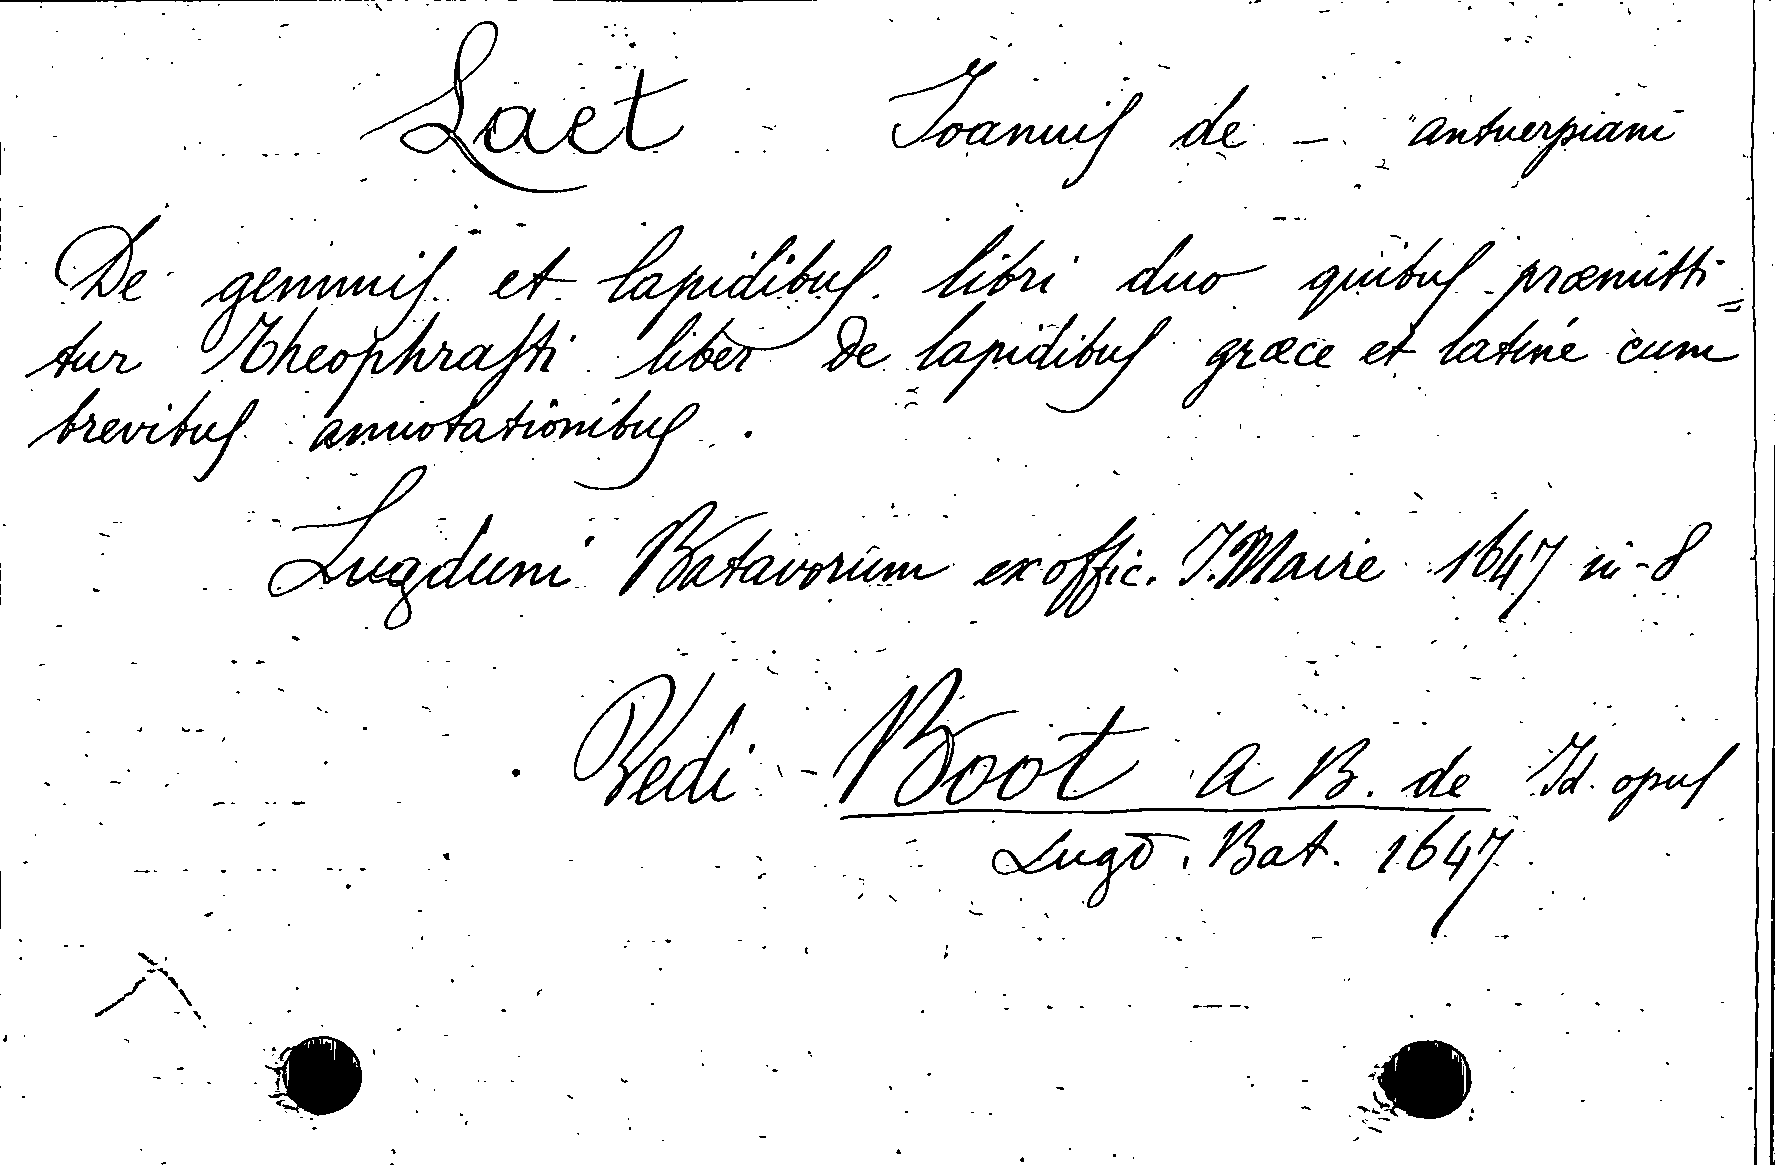 Laet Joannis de - antverpiani
De gemmis et lapidibus libri duo quibus præmitti=
tur Theophrasti liber de lapidibus græce et latine cum
brevibus annotationibus.
Lugduni Batavorum ex offic. J. Maire 1647 in-8
Vedi - Boot A B. de Id. opus
Lugd. Bat. 1647